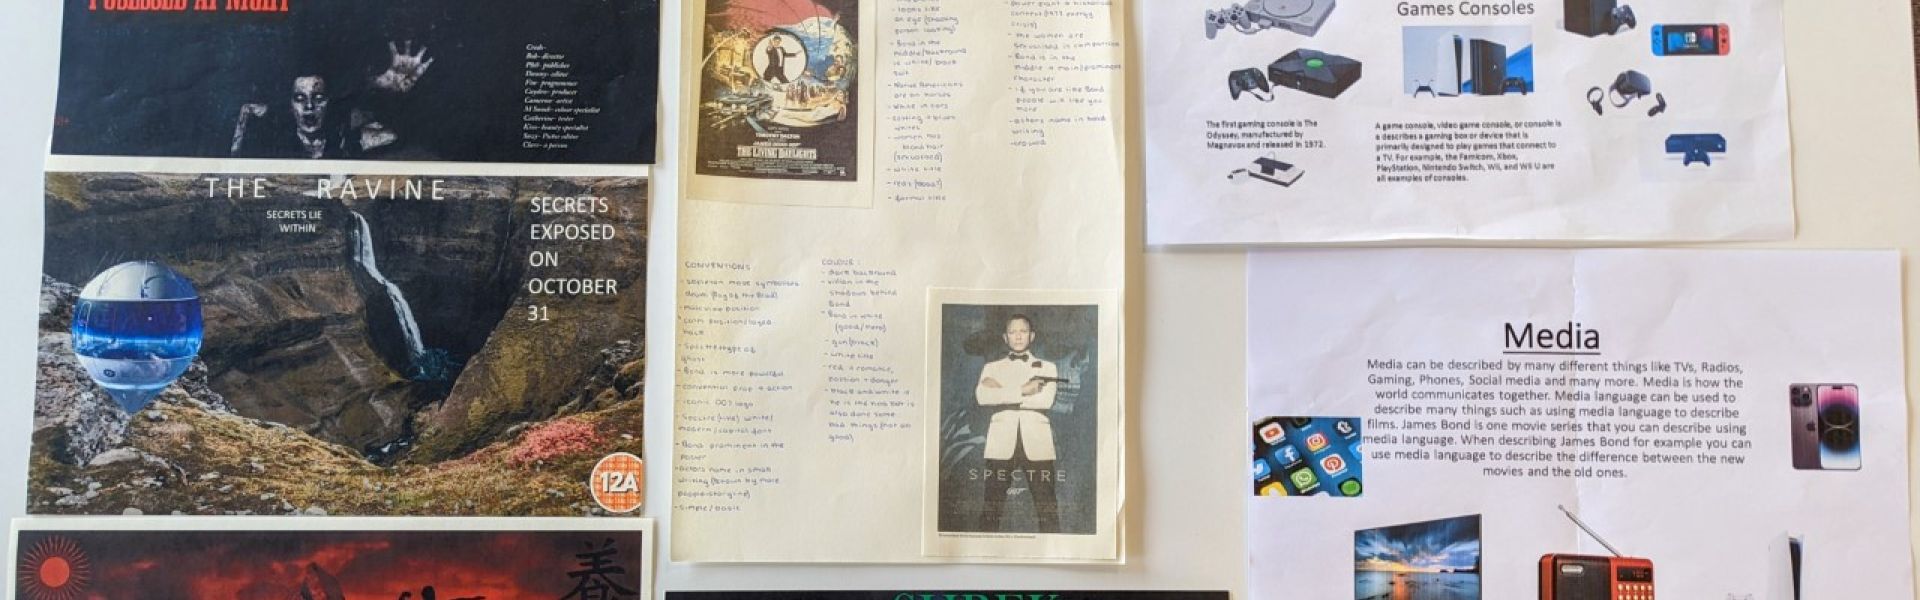 POSESSED AT NIGHT
Credit-
Bob- director
Phil- publisher
Danny- editor
Fin- programmer
Cayden- producer
Cameron- artist
M Snook- colour specialist
Catherine- tester
Kiss- beauty specialist
Suzy- Photo editor
Clare- a person
THE RAVINE
SECRETS LIE
WITHIN
SECRETS
EXPOSED
ON
OCTOBER
31
12A
養
TIMOTHY DALTON
THE LIVING DAYLIGHTS
- looks like
- Bond in the
middle/background
is white/black
suit
- Native Americans
are on horses
- white in cars
- women has
blond hair
(sexualised)
- white title
- formal title
context (1977 energy
crisis)
- the women are
sexualised in comparison
- Bond is in the
middle + main/prominent
character
- if you are like Bond
people will like you
more
- actors name in bold
writing
CONVENTIONS:
- skeleton mask symbolises
death (Day of the Dead)
- masculine position
- Spectre type of
ghost
- Bond is more powerful
- convention prop + action
- iconic 007 logo
- Spectre (title) white/
modern/capital font
- Bond prominent in the
poster
- actors name in small
writing (known by more
- simple/basic
COLOUR:
- dark background
- villian in the
shadows behind
Bond
- Bond in white
(good/hero)
- gun (black)
- white title
- red = romance,
passion + danger
- black and white =
he is the hero but is
also done some
bad things (not all
good)
SPECTRE
007
SHREK
Games Consoles
The first gaming console is The
Odyssey, manufactured by
Magnavox and released in 1972.
A game console, video game console, or console is
a describes a gaming box or device that is
primarily designed to play games that connect to
a TV. For example, the Famicom, Xbox,
PlayStation, Nintendo Switch, Wii, and Wii U are
all examples of consoles.
Media
Media can be described by many different things like TVs, Radios,
Gaming, Phones, Social media and many more. Media is how the
world communicates together. Media language can be used to
describe many things such as using media language to describe
films. James Bond is one movie series that you can describe using
media language. When describing James Bond for example you can
use media language to describe the difference between the new
movies and the old ones.